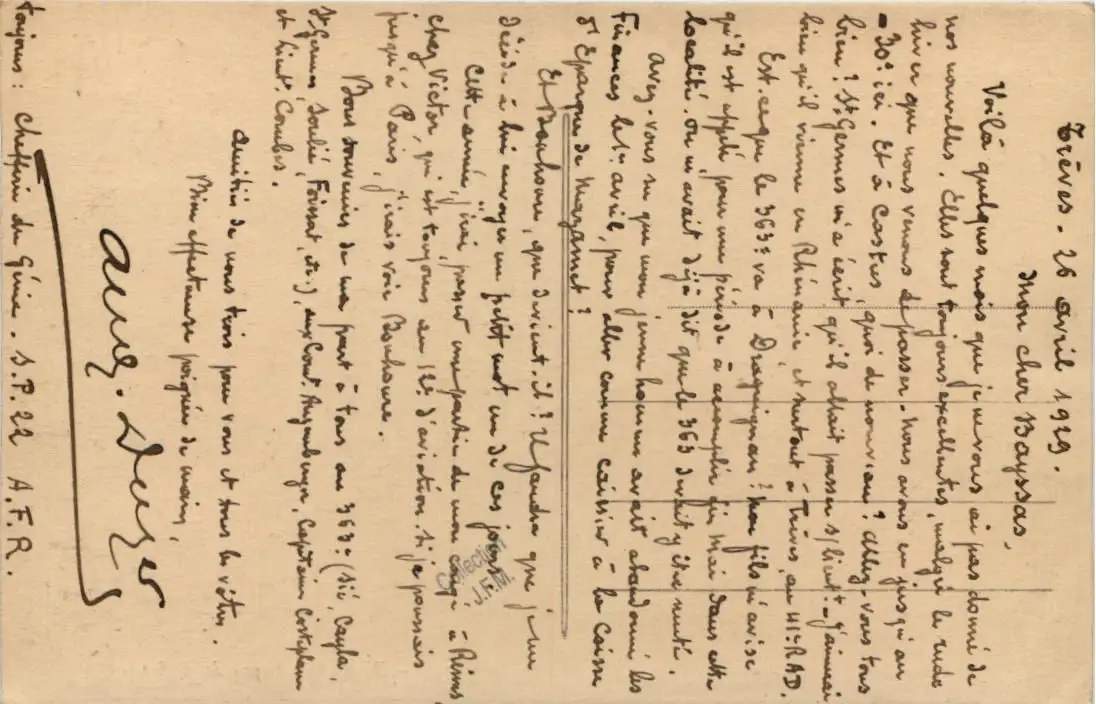 Trèves. 26 avril 1929.
Mon cher Bayssas,
Voilà quelques mois que je ne vous ai pas donné de
nos nouvelles. Elles sont toujours excellentes, malgré le rude
hiver que nous venons de passer. Nous avons eu jusqu'au
- 30° ici. Et à Castres quoi de nouveau ? Allez-vous tous
bien ? St Germes m'a écrit qu'il allait passer s/lieut. J'aimerai
bien qu'il vienne en Rhénanie, et surtout à Trèves, au 41e RAD.
Est-ce que le 363e va à Draguignan ? Mon fils m'avise
qu'il est appelé pour une période à accomplir fin mai dans cette
localité. On m'avait déjà dit que le 363 devait y être muté.
Avez-vous su que mon jeune homme avait abandonné les
Finances le 1er avril, pour aller comme caissier à la Caisse
d'Epargne de Mazamet ?
Et Bonhoure, que devient-il ? Il faudra que je me
décide à lui envoyer un petit mot un de ces jours.
Cette année, j'irai passer une partie de mon congé à Reims
chez Victor, qui est toujours au 12e d'aviation. Si je poussais
jusqu'à Paris, j'irais voir Bonhoure.
Bons souvenirs de ma part à tous au 363e (Sié, Cayla,
St Germes, Soulié, Foissat, etc), aux Capitaine
et lieut. Combes.
Amitiés de nous trois pour vous et tous les vôtres.
Bien affectueuse poignée de main,
Aug. Duger
Toujours : Chefferie du Génie. S.P. 22 A.F.R.
Collection
J.F.M.